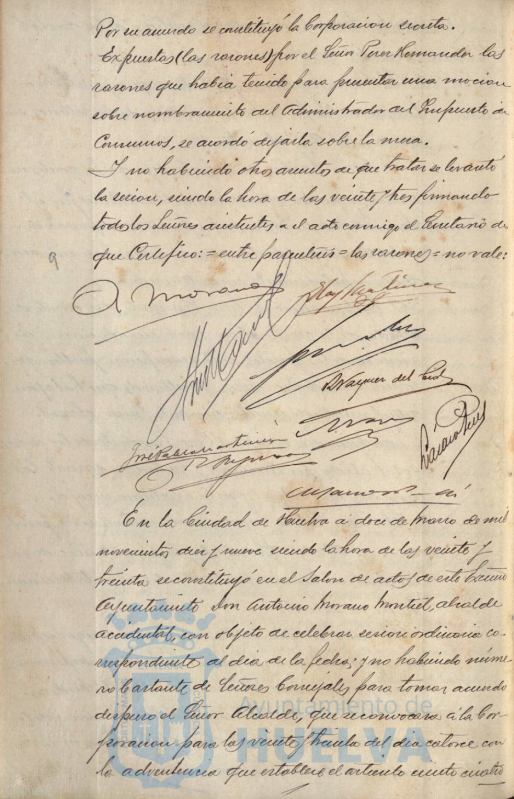 Por su acuerdo se constituyó la Corporacion secreta.
Expuestas (las razones) por el Señor Perez Hernandez las
razones que habia tenido para presentar una mocion
sobre nombramiento del Administrador del Impuesto de
Consumos, se acordó dejarla sobre la mesa.
Y no habiendo otros asuntos de que tratar se levantó
la sesion, siendo la hora de las veinte y tres firmando
todos los Señores asistentes a el acto conmigo el Secretario de
que Certifico: = entre parentesis = las razones = no vale:
9
A Morano
B Vazquez del Cid
José Pablo Martinez
En la Ciudad de Huelva á doce de Marzo de mil
novecientos diez y nueve siendo la hora de las veinte y
treinta se constituyó en el Salon de actos de este Excmo
Ayuntamiento Don Antonio Morano Montiel, alcalde
accidental, con objeto de celebrar sesion ordinaria co-
rrespondiente al dia de la fecha; y no habiendo núme-
ro bastante de Señores Concejales para tomar acuerdo
dispuso el Señor Alcalde, que se convocara á la Cor-
poracion para las veinte y treinta del dia catorce con
la advertencia que establece el articulo ciento cuatro
Ayuntamiento de
HUELVA